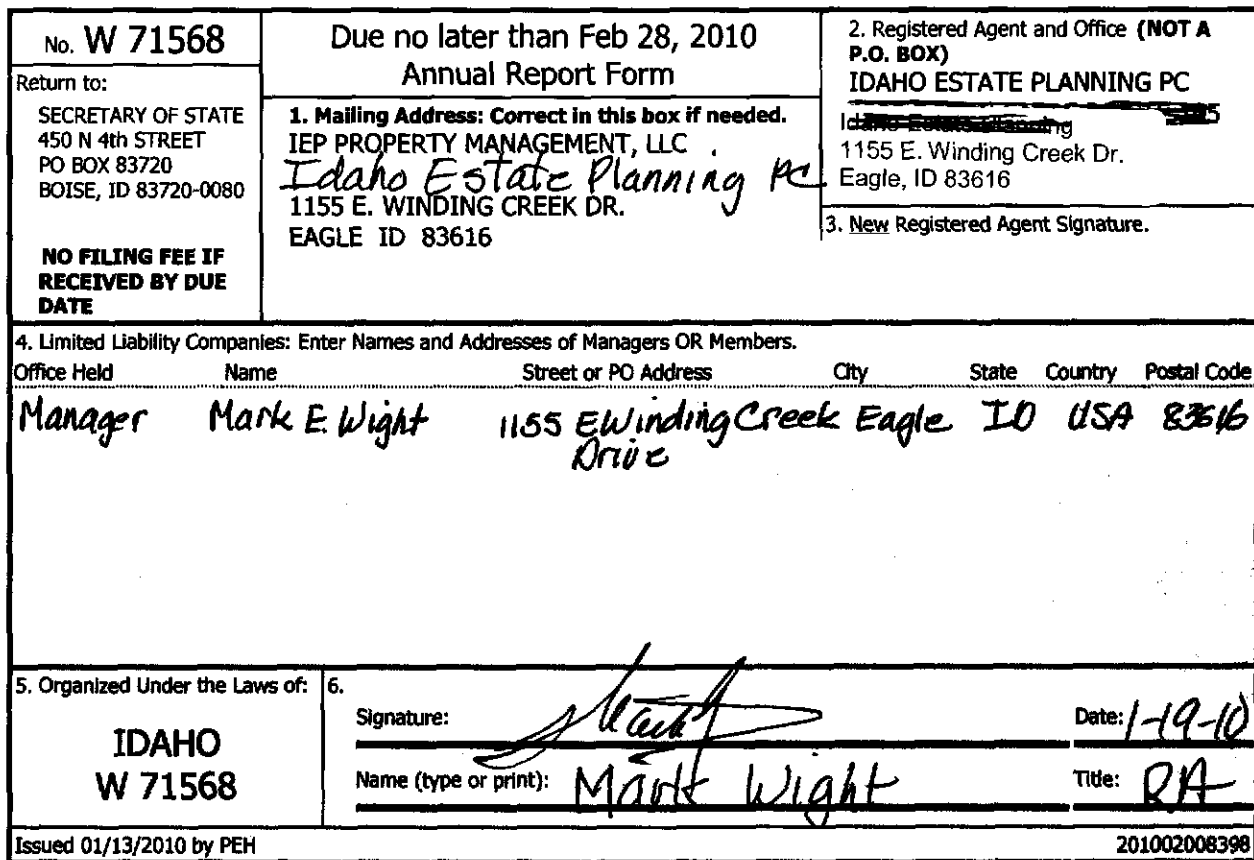 No. W 71568
Return to:
SECRETARY OF STATE
450 N 4th STREET
PO BOX 83720
BOISE, ID 83720-0080
NO FILING FEE IF
RECEIVED BY DUE
DATE
Due no later than Feb 28, 2010
Annual Report Form
1. Mailing Address: Correct in this box if needed.
IEP PROPERTY MANAGEMENT, LLC
Idaho Estate Planning PC
1155 E. WINDING CREEK DR.
EAGLE ID 83616
2. Registered Agent and Office (NOT A
P.O. BOX)
IDAHO ESTATE PLANNING PC
Idaho Estate Planning
1155 E. Winding Creek Dr.
Eagle, ID 83616
3. New Registered Agent Signature.
4. Limited Liability Companies: Enter Names and Addresses of Managers OR Members.
Office Held Name Street or PO Address City State Country Postal Code
Manager Mark E. Wight 1155 E Winding Creek Eagle ID USA 83616
Drive
5. Organized Under the Laws of:
IDAHO
W 71568
6.
Signature: Date: 1-19-10
Name (type or print): Mark Wight Title: RA
Issued 01/13/2010 by PEH 201002008398